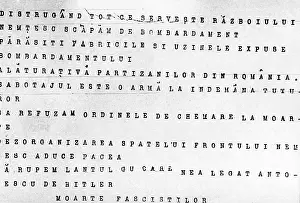 DISTRUGÂND TOT CE SERVEȘTE RĂZBOIULUI
NEMȚESC SCĂPĂM DE BOMBARDAMENT
PĂRĂSIȚI FABRICILE ȘI UZINELE EXPUSE
BOMBARDAMENTULUI
ALĂTURAȚIVĂ PARTIZANILOR DIN ROMÂNIA.
SABOTAJUL ESTE O ARMĂ LA INDEMÂNA TUTU-
ROR
SA REFUZAM ORDINELE DE CHEMARE LA MOAR-
TE
DEZORGANIZAREA SPATELUI FRONTULUI NEM-
ȚESC ADUCE PACEA
SĂ RUPEM LANTUL CU CARE NEA LEGAT ANTO-
NESCU DE HITLER
MOARTE FASCISTILOR